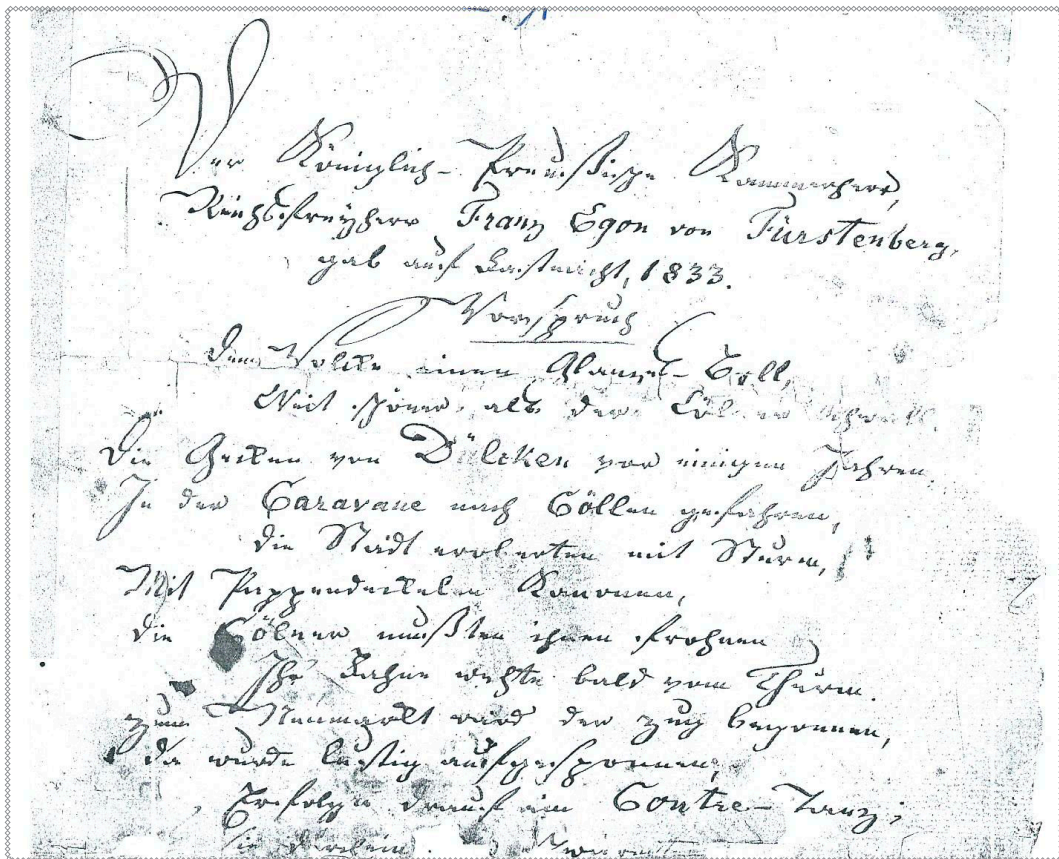 Der Königlich-Preußische Kammerherr,
Reichsfreyherr Franz Egon von Fürstenberg,
gab auf Fastnacht, 1833.
Vorspruch
Dem Volcke einen Glanz-Ball,
Weit schöner als der Cölner
Die Gecken von Dülcken vor einigen Jahren
In der Caravane nach Cöllen gefahren,
die Stadt eroberten mit Sturm,
Mit Pappendeckelen Kanonen,
die Cölner mußten ihnen frohnen
Ihr Fahne wehte bald vom Thurm.
zum Neumarkt ward der Zug begonnen,
da wurde lustig aufgesponnen,
Erfolgte drauf ein Contre-Tanz;